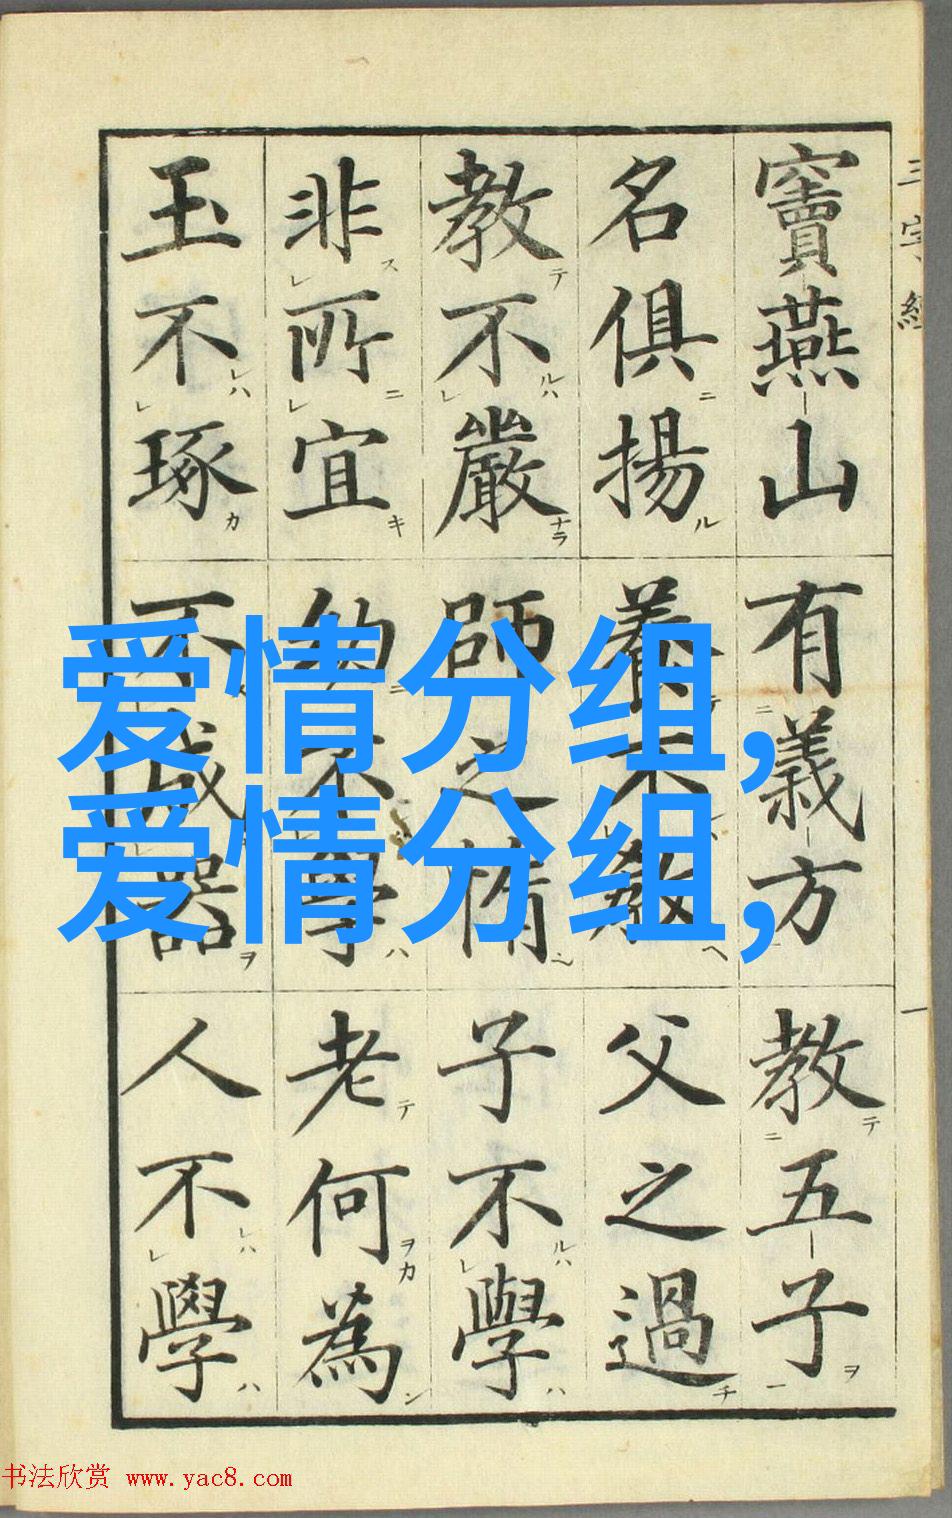 三字經
一
竇燕山有義方教五子
名俱揚養不教父之過
教不嚴師之惰子不學
非所宜幼不學老何為
玉不琢不成器人不學
爱情分组,
爱情分组,
书法欣赏 www.yac8.com